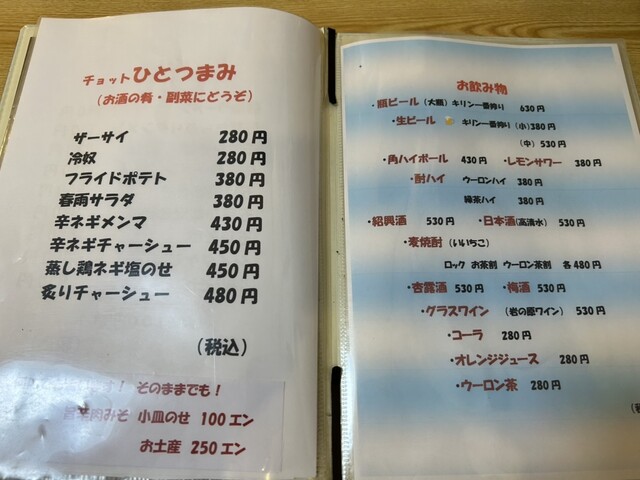 チョットひとつまみ
(お酒の肴・副菜にどうぞ)
ザーサイ 280円
冷奴 280円
フライドポテト 380円
春雨サラダ 380円
辛ネギメンマ 430円
辛ネギチャーシュー 450円
蒸し鶏ネギ塩のせ 450円
炙りチャーシュー 480円
(税込)
! そのままでも!
肉みそ 小皿のせ 100エン
お土産 250エン
お飲み物
・瓶ビール (大瓶) キリン一番搾り 630円
・生ビール キリン一番搾り (小)380円
(中) 530円
・角ハイボール 430円 ・レモンサワー 380円
・酎ハイ ウーロンハイ 380円
緑茶ハイ 380円
・紹興酒 530円 ・日本酒(高清水) 530円
・麦焼酎 (いいちこ)
ロック お茶割 ウーロン茶割 各480円
・杏露酒 530円 ・梅酒 530円
・グラスワイン (岩の原ワイン) 530円
・コーラ 280円
・オレンジジュース 280円
・ウーロン茶 280円